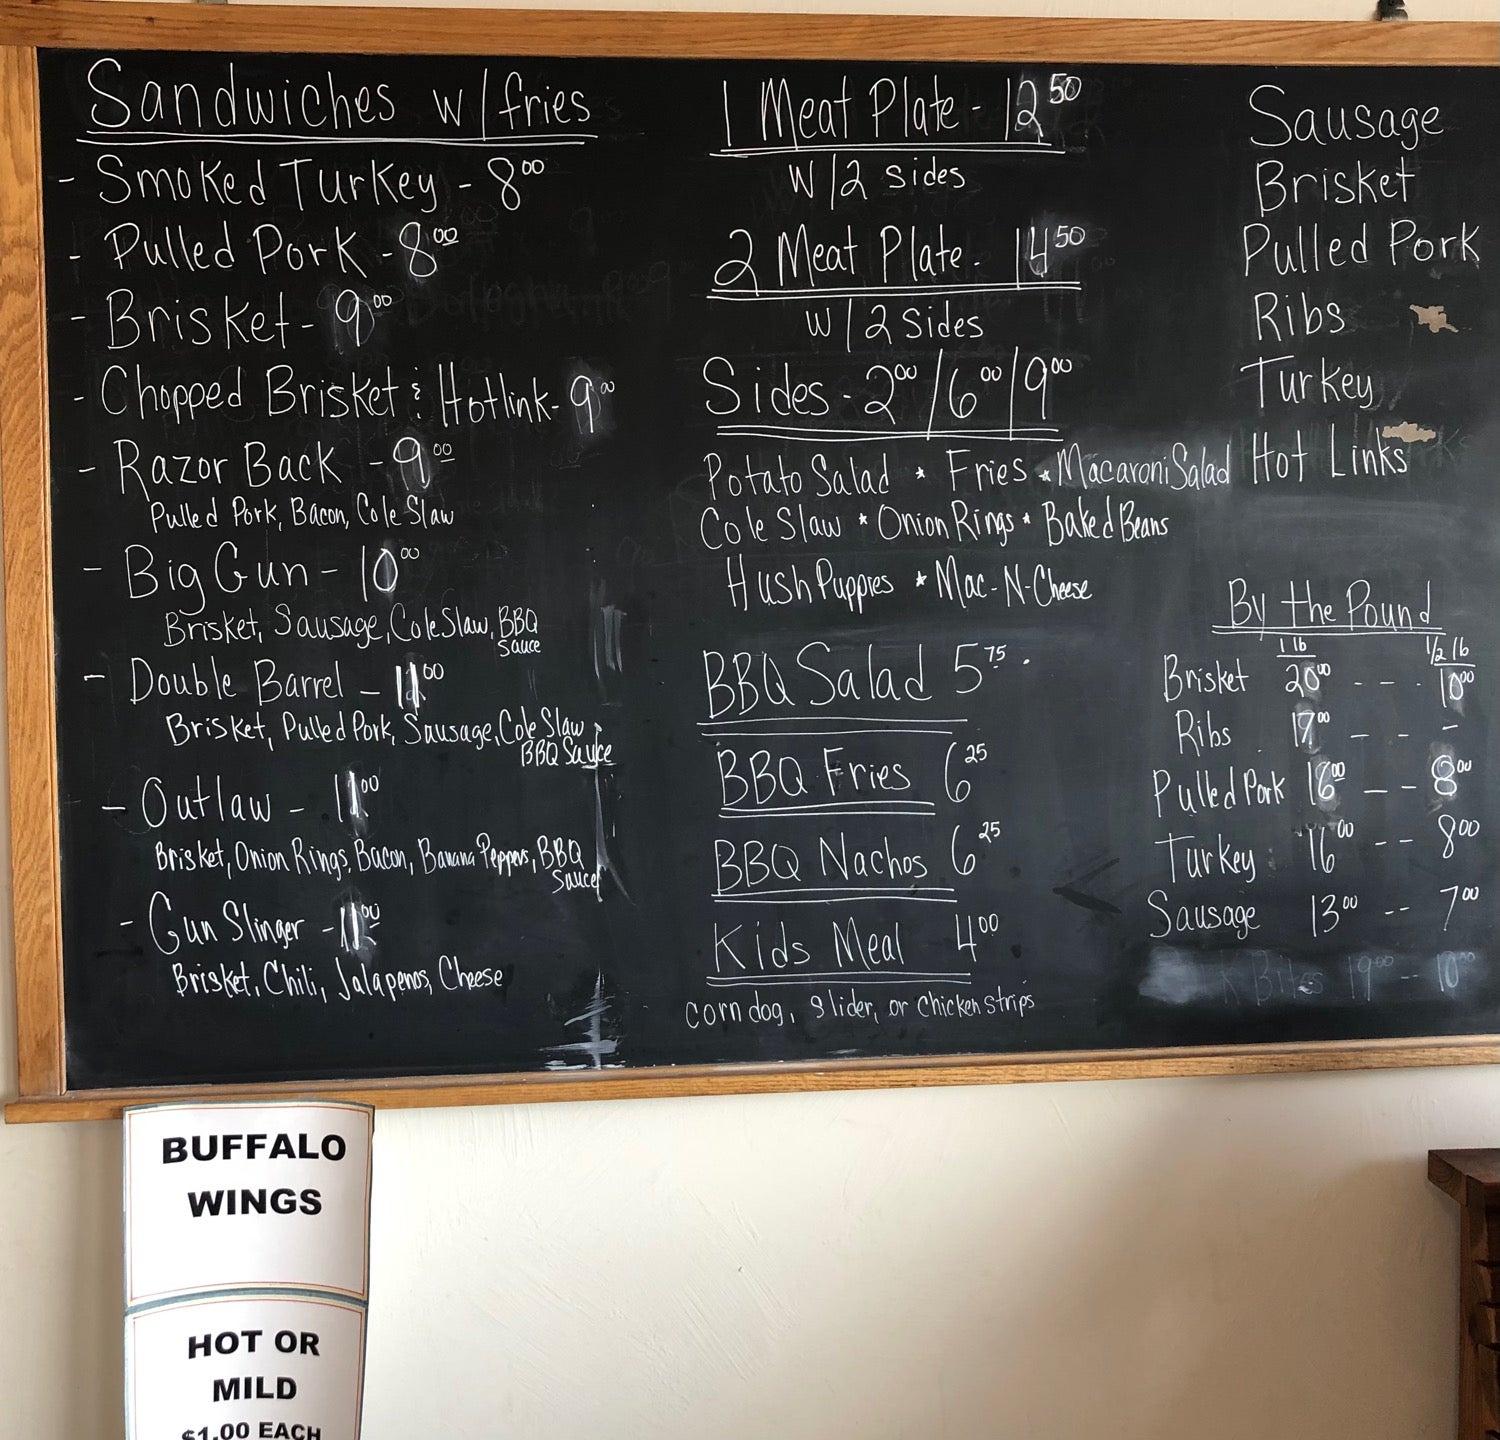 Sandwiches w/fries
- Smoked Turkey - 8⁰⁰
- Pulled Pork - 8⁰⁰
- Brisket - 9⁰⁰
- Chopped Brisket & Hotlink - 9⁰⁰
- Razor Back - 9⁰⁰
Pulled Pork, Bacon, Cole Slaw
- Big Gun - 10⁰⁰
Brisket, Sausage, Cole Slaw, BBQ
Sauce
- Double Barrel - 11⁰⁰
Brisket, Pulled Pork, Sausage, Cole Slaw,
BBQ Sauce
- Outlaw - 11⁰⁰
Brisket, Onion Rings, Bacon, Banana Peppers, BBQ
Sauce
- Gun Slinger - 11⁰⁰
Brisket, Chili, Jalapenos, Cheese
1 Meat Plate - 12⁵⁰
w/2 sides
2 Meat Plate - 14⁵⁰
w/2 sides
Sides - 2⁰⁰/6⁰⁰/9⁰⁰
Potato Salad * Fries * Macaroni Salad
Cole Slaw * Onion Rings * Baked Beans
Hush Puppies * Mac-N-Cheese
BBQ Salad 5⁷⁵
BBQ Fries 6²⁵
BBQ Nachos 6²⁵
Kids Meal 4⁰⁰
corn dog, slider, or chicken strips
Sausage
Brisket
Pulled Pork
Ribs
Turkey
Hot Links
By the Pound
1 lb 1/2 lb
Brisket 20⁰⁰ - - - 10⁰⁰
Ribs 17⁰⁰ - - -
Pulled Pork 16⁰⁰ - - 8⁰⁰
Turkey 16⁰⁰ - - 8⁰⁰
Sausage 13⁰⁰ - - 7⁰⁰
Bites 19⁰⁰ - - 10⁰⁰
BUFFALO
WINGS
HOT OR
MILD
$1.00 EACH